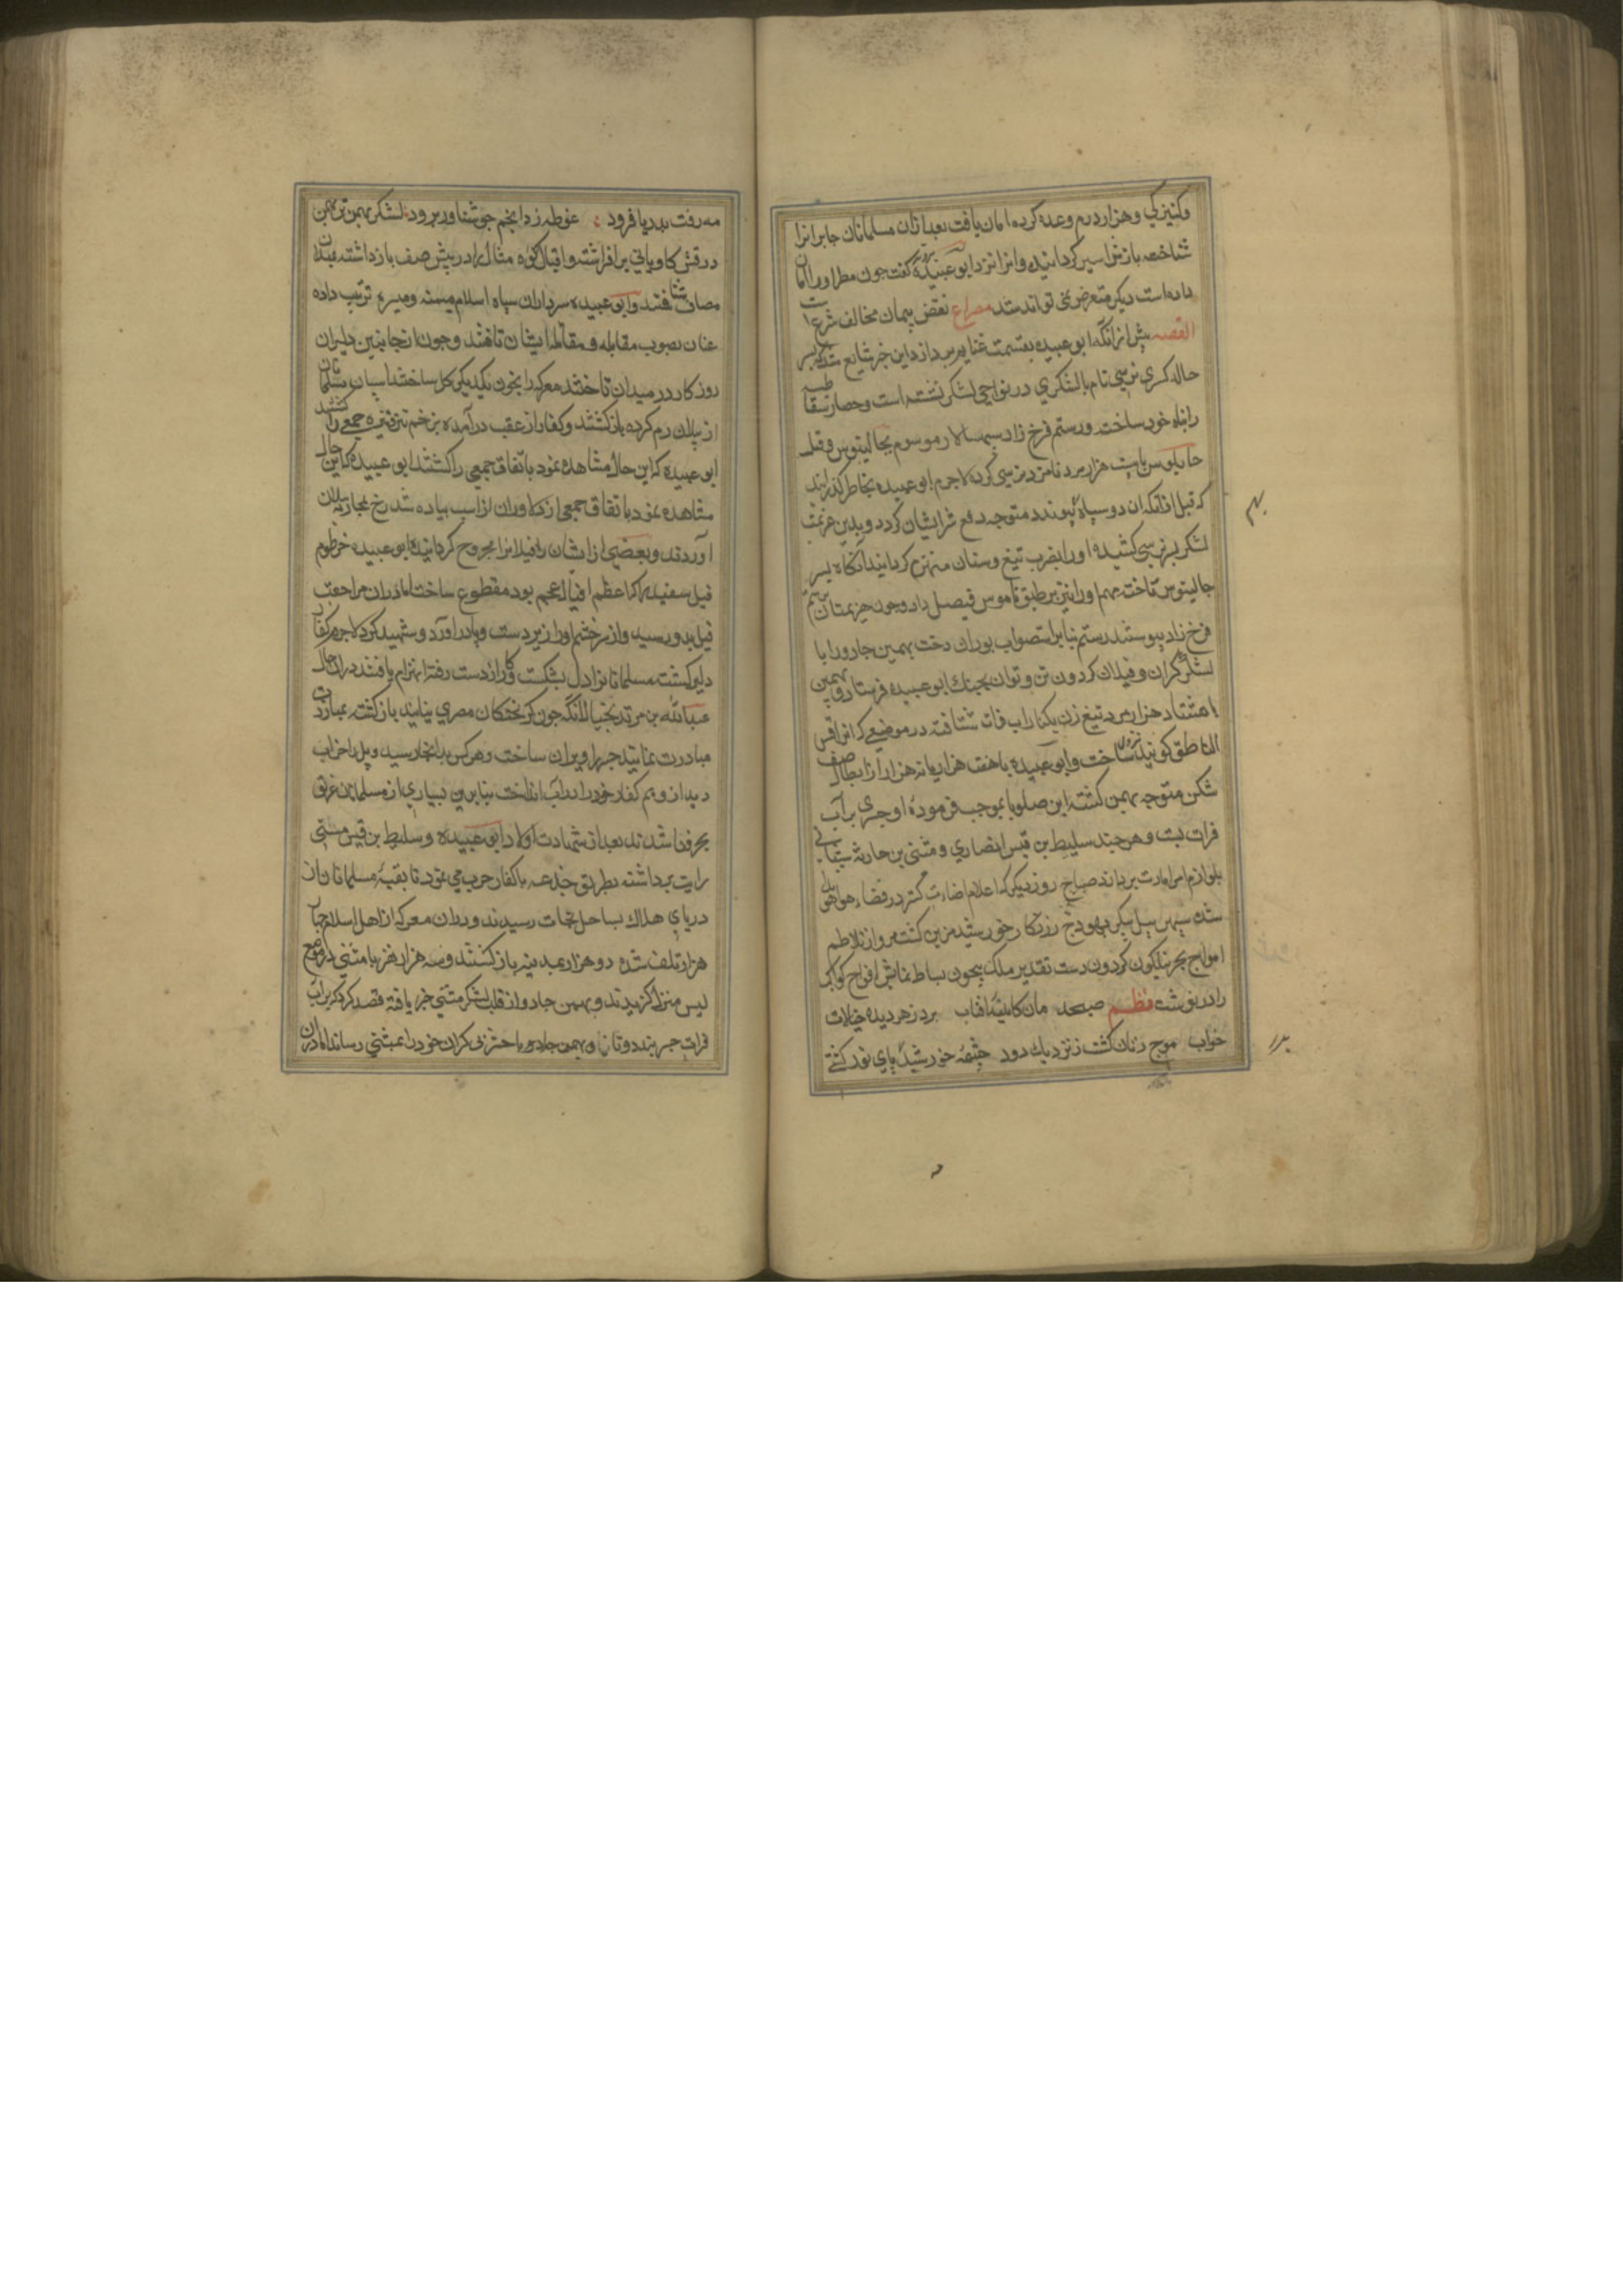 وکنیزکی وهزار درم وعده کرده امان یافت بعد ازان مسلمانان جابانرا
شناخته بازش اسیر کردانیدند وانرا نزد ابو عبیده گفت جون مطر اورا امان
داده است دیکر متعرض نمی تواند شد مصراع نقض پیمان مخالف شرع
القصه پیش ازانکه ابو عبیده بقسمت غنایم پردازد این خبر شایع شد که پسر
خاله کسری نرسی نام بالشکری در نواحی لشکر نشسته است وحصار سقاطیه
را پناه خود ساخته ورستم فرخ زاد سپهسالار موسوم بجالینوس وقیل
جابلوس با بیست هزار مرد نامزد نرسی کرده لاجرم ابو عبیده بخاطر گذرانید
که قبل ازانکه ان دو سپاه پیوندند متوجه دفع شر ایشان کردد وبدین عزیمت
لشکر بر نرسی کشیده اورا بضرب تیغ وسنان منهزم کردانید انکاه بر سر
جالینوس تاخته مهم اورا نیز بر طبق ناموس فیصل داد وجون هزیمتیان برستم
فرخ زاد پیوستند رستم بنا بر استصواب بوران دخت بهمن جادورا با
لشکر کران وفیلان کردون تن وتوان بجنك ابو عبیده فرستاد وبهمن
با هشتاد هزار مرد تیغ زن بکنار اب فرات شتافته در موضعی که انرا قس
الناطق کویند نزول ساخت وابو عبیده با هفت هزار یا نه هزار از ابطال صف
شکن متوجه بهمن کشته ابن صلوبا بموجب فرموده او جسری بر آب
فرات بست وهر جند سلیط بن قیس انصاری ومثنی بن حارثه شیبانی
بلوازم امر امارت بردند صباح روز دیکر که اعلام اضاءت کستر در فضاء هوا
شد سپهر پیل پیکر بهودج زرنکار خورشید مزین کشت واز تلاطم
امواج بحر نیلکون کردون دست تقدیر ملك بیجون بساط نمایش افواج کواکب
را درنوشت نظم صبحدمان کاینه افتاب برد زهر دیده خیالات
خواب موج زنان کشت ز نزدیك ودور جشمه خورشید بدریای نور کشتی
مه رفت بدریا فرود غوطه زد انجم جو شناور برود لشکر بهمن تن بهمن
درفش کاویانی بر افراشته وافیال کوه مثال را در پیش صف بازداشته بمیدان
مصاف شتافتند وابو عبیده سرداران سپاه اسلام میمنه ومیسره ترتیب داده
عنان بصوب مقابله ومقاتله ایشان تافتند وجون از جانبین دلیران
روز کار در میدان تاختند معرکه را بخون یکدیکر کل ساختند اسپان مسلمانان
از پیلان رم کرده بازکشتند وکفار از عقب درآمده بزخم تیر ونیزه جمعی را کشتند
ابو عبیده که این حال مشاهده نمود باتفاق جمعی را کشتند ابو عبیده که این حال
مشاهده نمود باتفاق جمعی از دلاوران از اسب پیاده شد رخ بمحاربه پیلان
آوردند وبعضی از ایشان را فیلانرا مجروح کردانیده ابو عبیده خرطوم
فیل سفید را که اعظم افیال عجم بود مقطوع ساخت اما دران مراجعت
فیل بدو رسید واز سر خشم اورا زیر دست وپا درآورد وشهید کرد لاجرم کفار
دلیر کشته مسلمانانرا دل بشکست وکار از دست رفته انهزام یافتند دران حال
عبدالله بن مرثد بخیال آنکه جون کریختکان مصری نیابند بازکشته بمبارزت
مبادرت نمایند جسر را ویران ساخت وهر کس بدانجا رسید وپل را خراب
دید از وهم کفار خود را در آب انداخت بنابرین بسیاری از مسلمانان غریق
بحر فنا شدند بعد از شهادت اولاد ابو عبیده وسلیط بن قیس مثنی
رایت برداشته بطریق خدعه با کفار حرب می نمود تا بقیه مسلمانان از
دریای هلاك بساحل نجات رسیدند ودران معرکه از اهل اسلام جهار
هزار تلف شده دو هزار بمدینه بازکشتند وسه هزار نفر با مثنی در موضع
لیس منزل کزیدند وبهمن جادو از قلت لشکر مثنی خبر یافته قصد کرد که بر آب
فرات جسر بندد وتا وبهمن جادو با حشر بی کران خود را بمثنی رساند اما دران